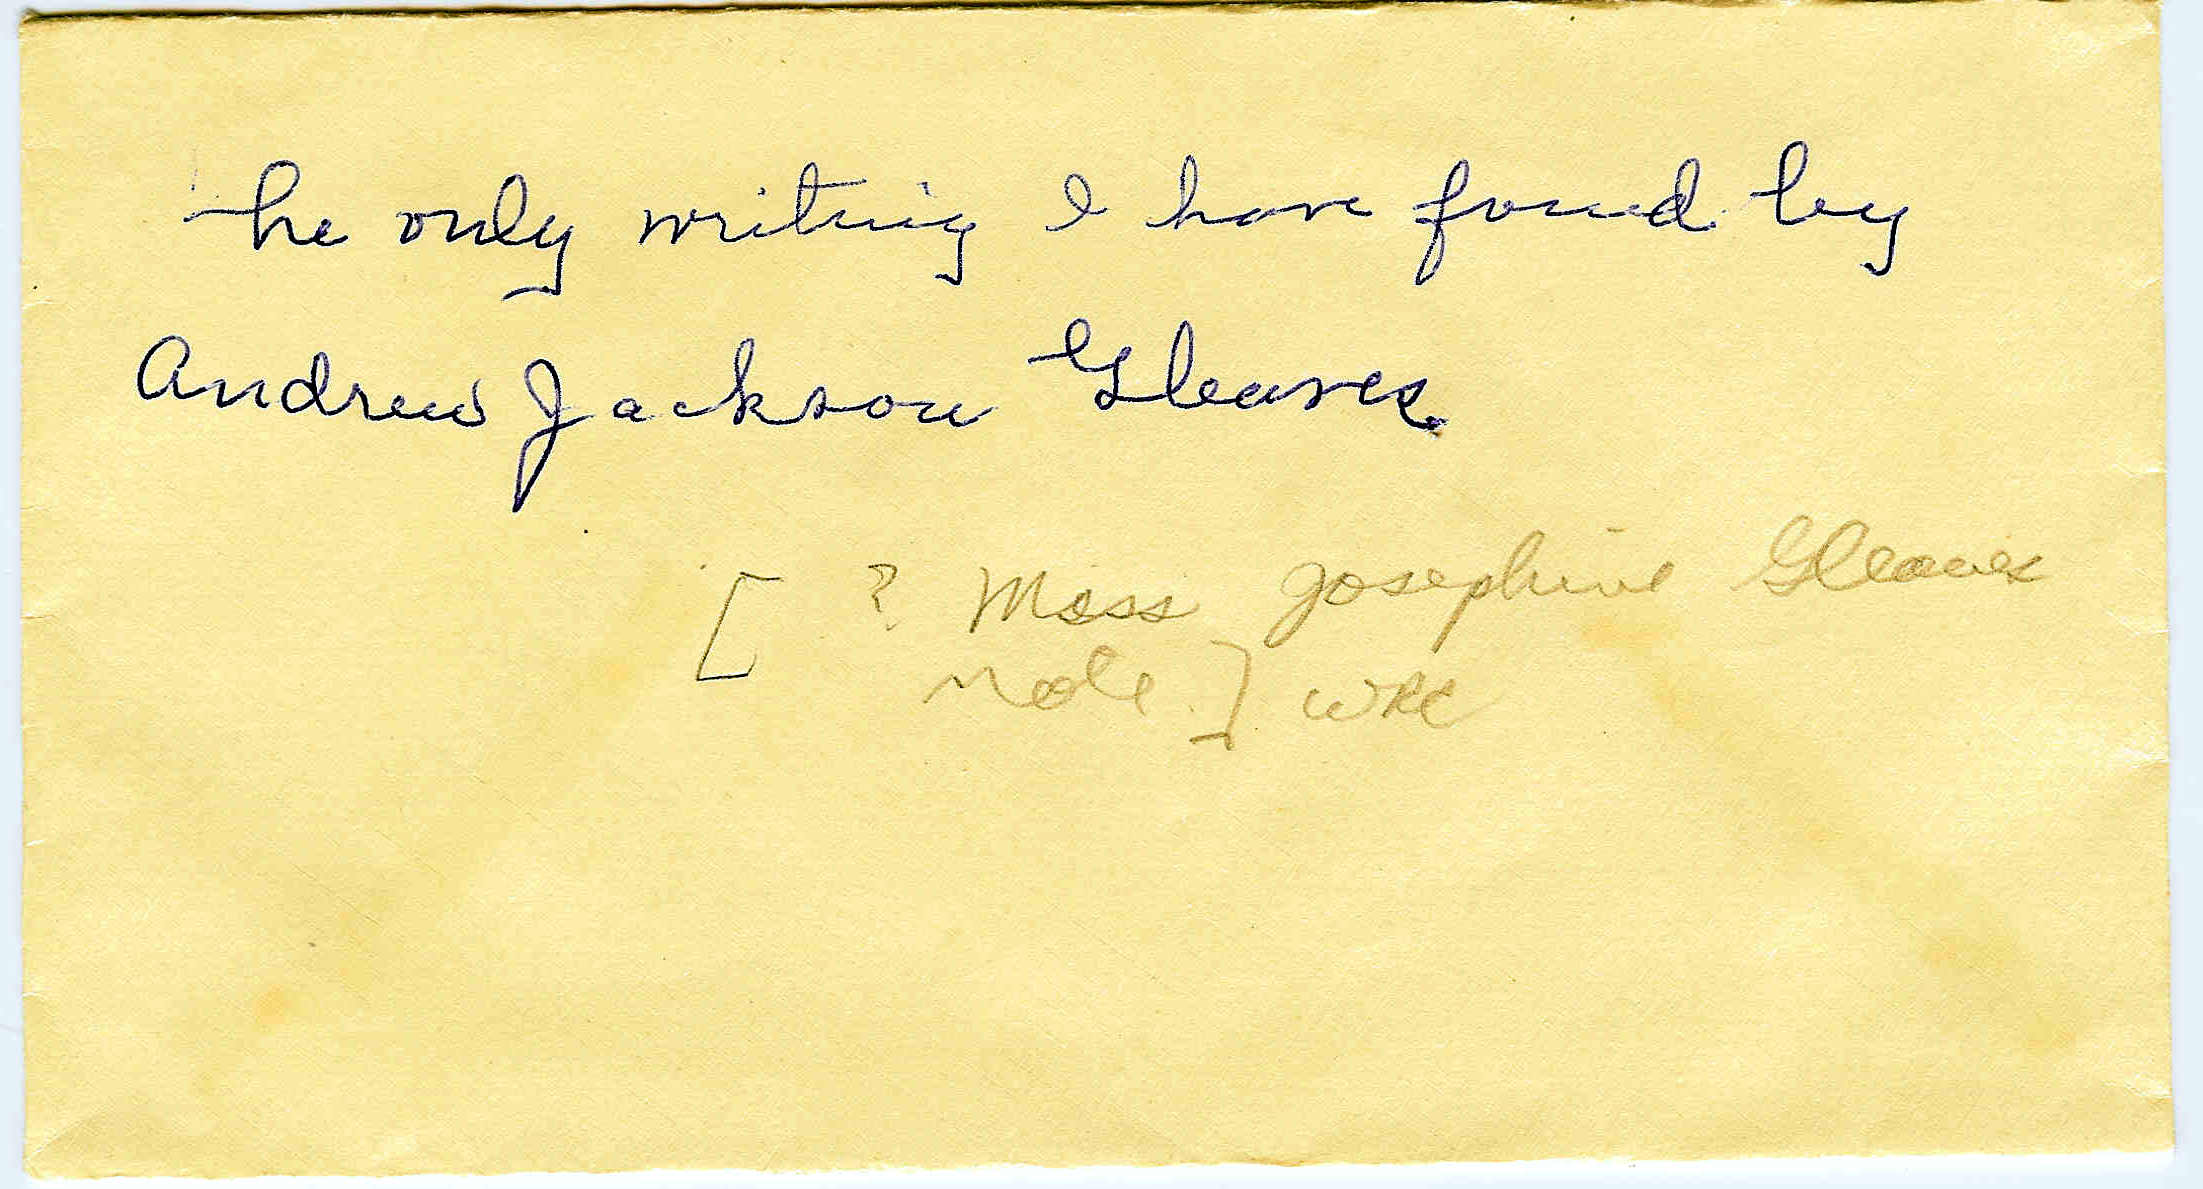 The only writing I have found by
Andrew Jackson Gleaves.
[ ? Miss Josephine Gleaves
note.] WRC